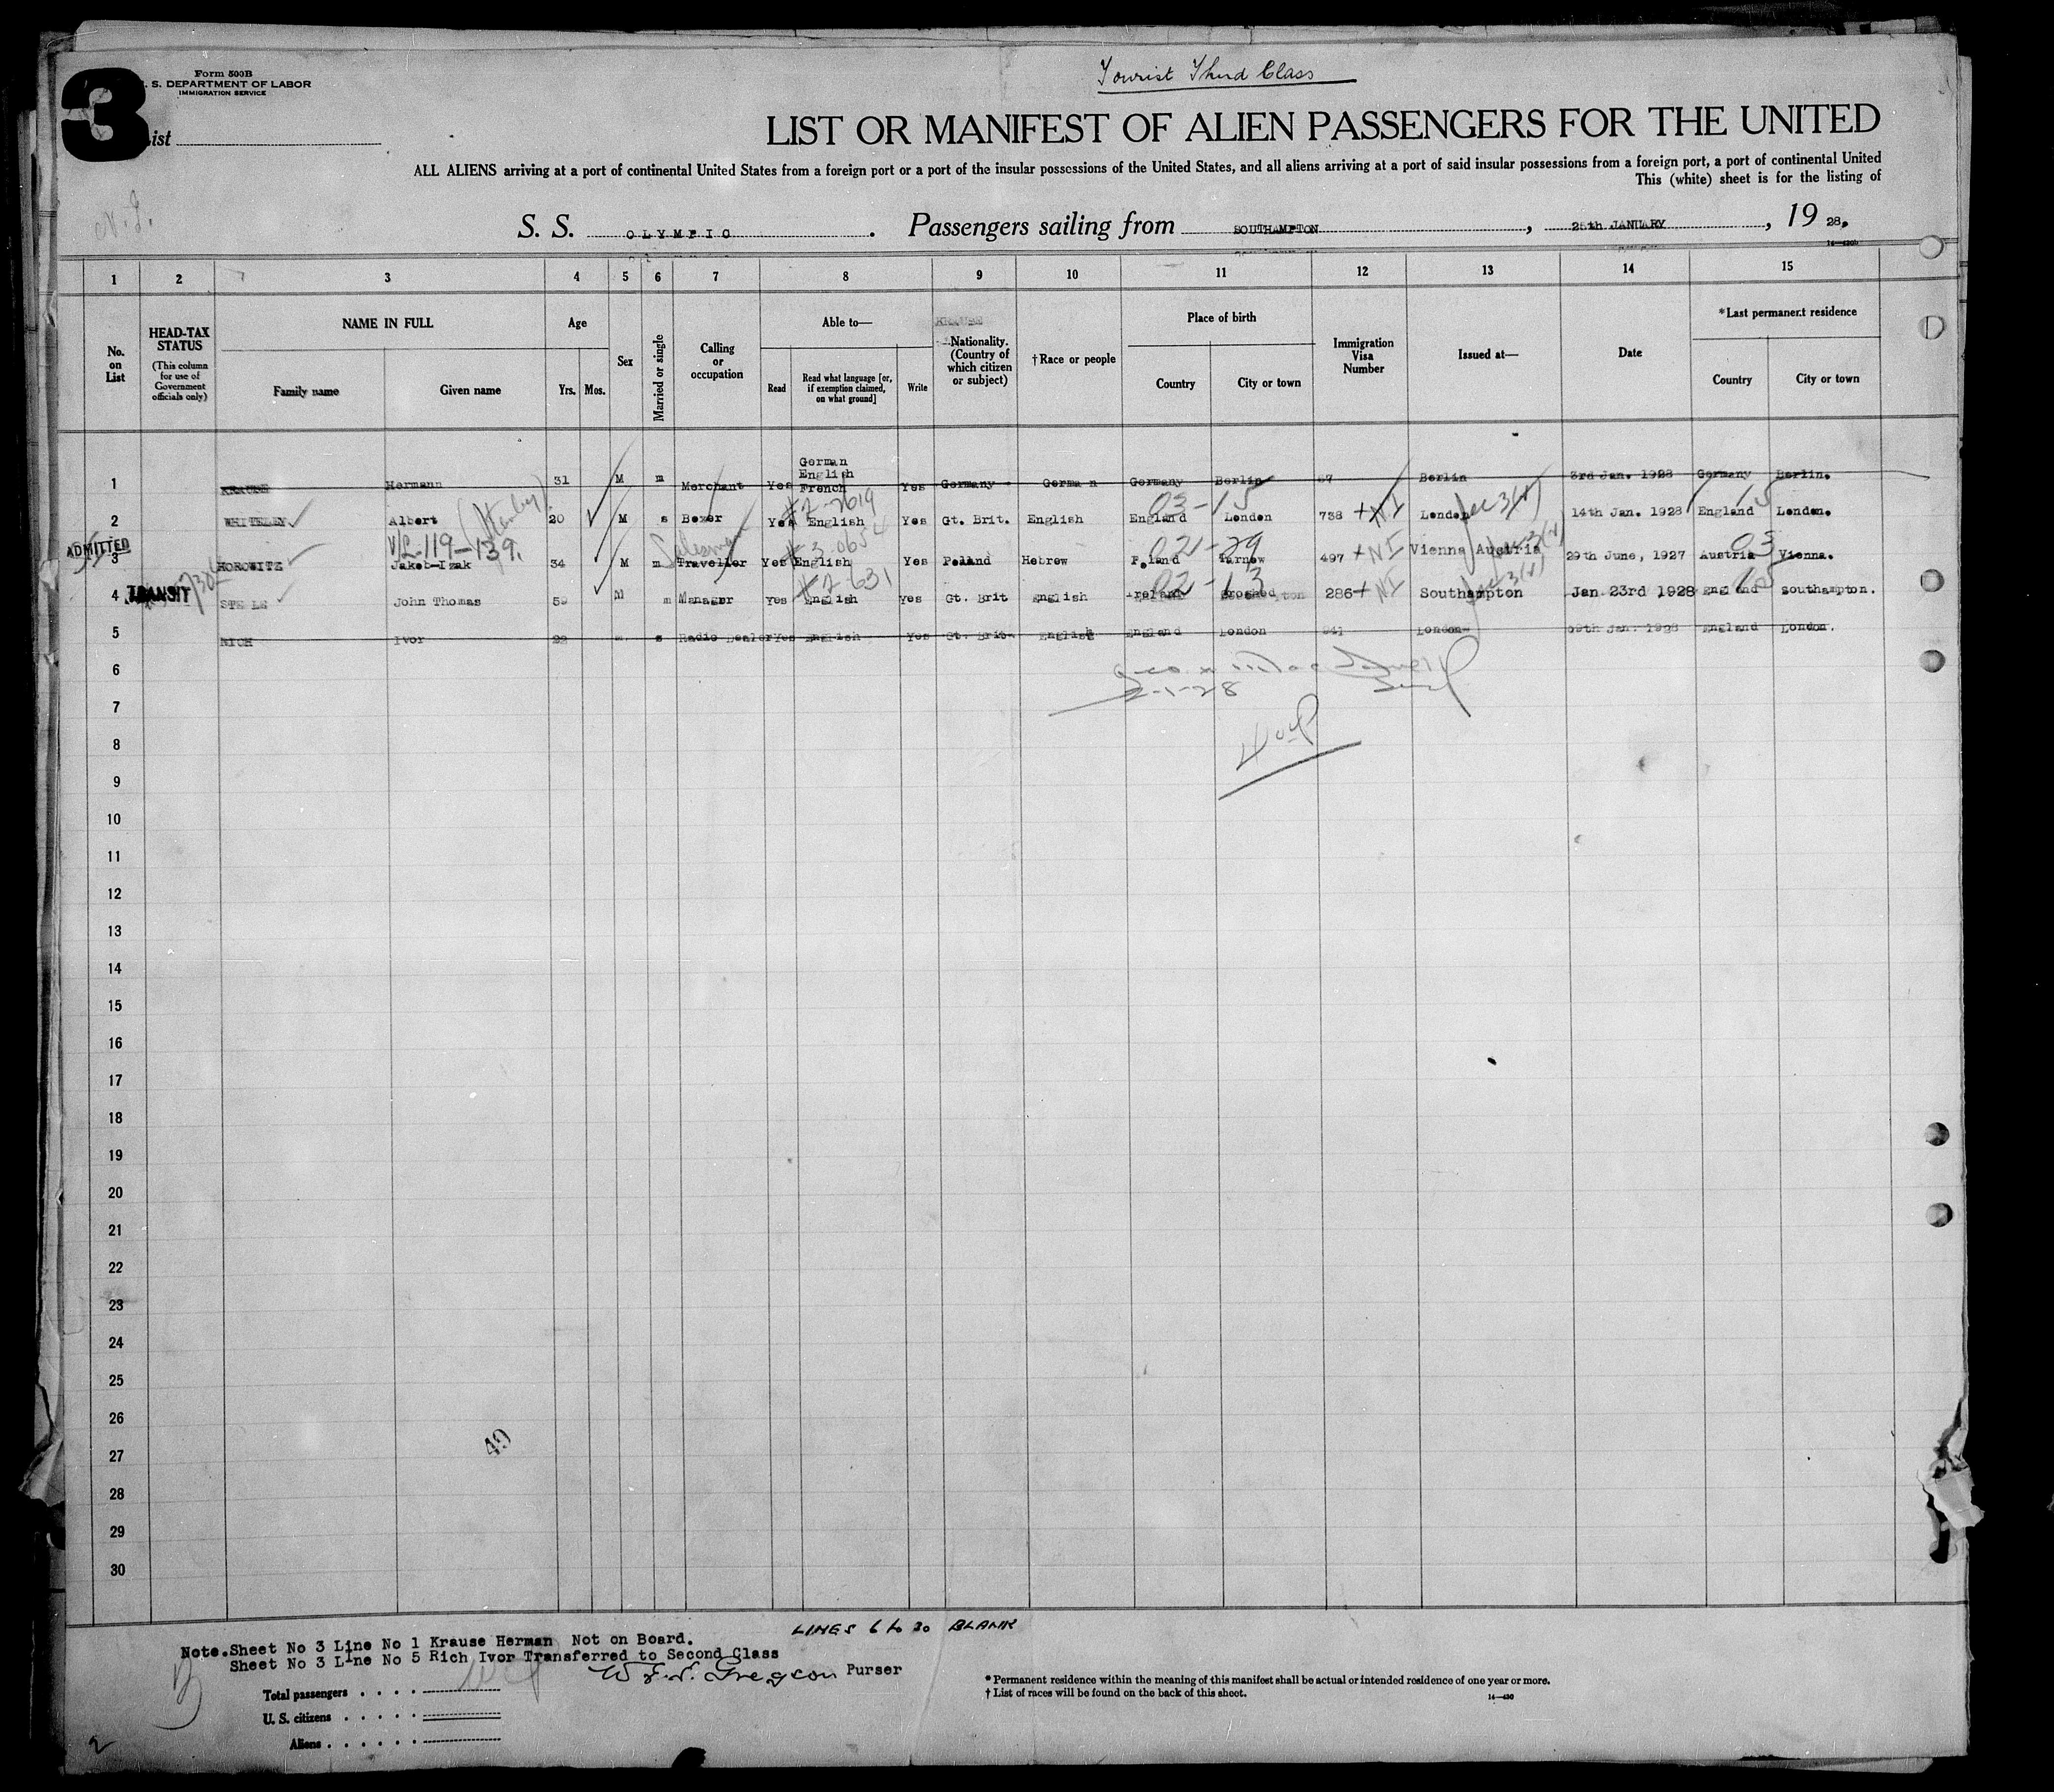 Tourist Third Class
3
Form 500B
U. S. DEPARTMENT OF LABOR
IMMIGRATION SERVICE
List
LIST OR MANIFEST OF ALIEN PASSENGERS FOR THE UNITED
ALL ALIENS arriving at a port of continental United States from a foreign port or a port of the insular possessions of the United States, and all aliens arriving at a port of said insular possessions from a foreign port, a port of continental United
This (white) sheet is for the listing of
S. S. OLYMPIC. Passengers sailing from SOUTHAMPTON, 25th JANUARY, 19 28.
1 2 3 4 5 6 7 8 9 10 11 12 13 14 15
No. on List
HEAD-TAX STATUS (This column for use of Government officials only)
NAME IN FULL
Family name Given name
Age
Yrs. Mos.
Sex
Married or single
Calling or occupation
Able to—
Read Read what language [or, if exemption claimed, on what ground] Write
KRAUSE
Nationality. (Country of which citizen or subject)
†Race or people
Place of birth
Country City or town
Immigration Visa Number
Issued at—
Date
*Last permanent residence
Country City or town
1 KRAUSE Hermann 31 M m Merchant Yes German English French Yes Germany German Germany Berlin 57 Berlin 3rd Jan. 1928 Germany Berlin.
(Stanley) #2-2619 03-15
2 WHITELEY Albert 20 M s Boxer Yes English Yes Gt. Brit. English England London 738 + NI London 14th Jan. 1928 England London.
ADMITTED V/L-119-139. Salesman #3-0654 02-29 03
3 HOROWITZ Jakob-Izak 34 M m Traveller Yes English Yes Poland Hebrew Poland Tarnow 497 + NI Vienna Austria 29th June, 1927 Austria Vienna.
TRANSIT #2-631 02-13
4 STEELE John Thomas 59 M m Manager Yes English Yes Gt. Brit English Ireland 286+ NI Southampton Jan 23rd 1928 England Southampton.
5 RICH Ivor 22 m s Radio Dealer Yes English Yes Gt. Brit English England London 941 London 09th Jan. 1928 England London.
6
2-1-28
7
8
9
10
11
12
13
14
15
16
17
18
19
20
21
22
23
24
25
26
27
40
28
29
30
LINES 6 to 30 BLANK
Note. Sheet No 3 Line No 1 Krause Herman Not on Board.
Sheet No 3 Line No 5 Rich Ivor Transferred to Second Class
Purser
Total passengers
U. S. citizens
Aliens
* Permanent residence within the meaning of this manifest shall be actual or intended residence of one year or more.
† List of races will be found on the back of this sheet.
14—430
2